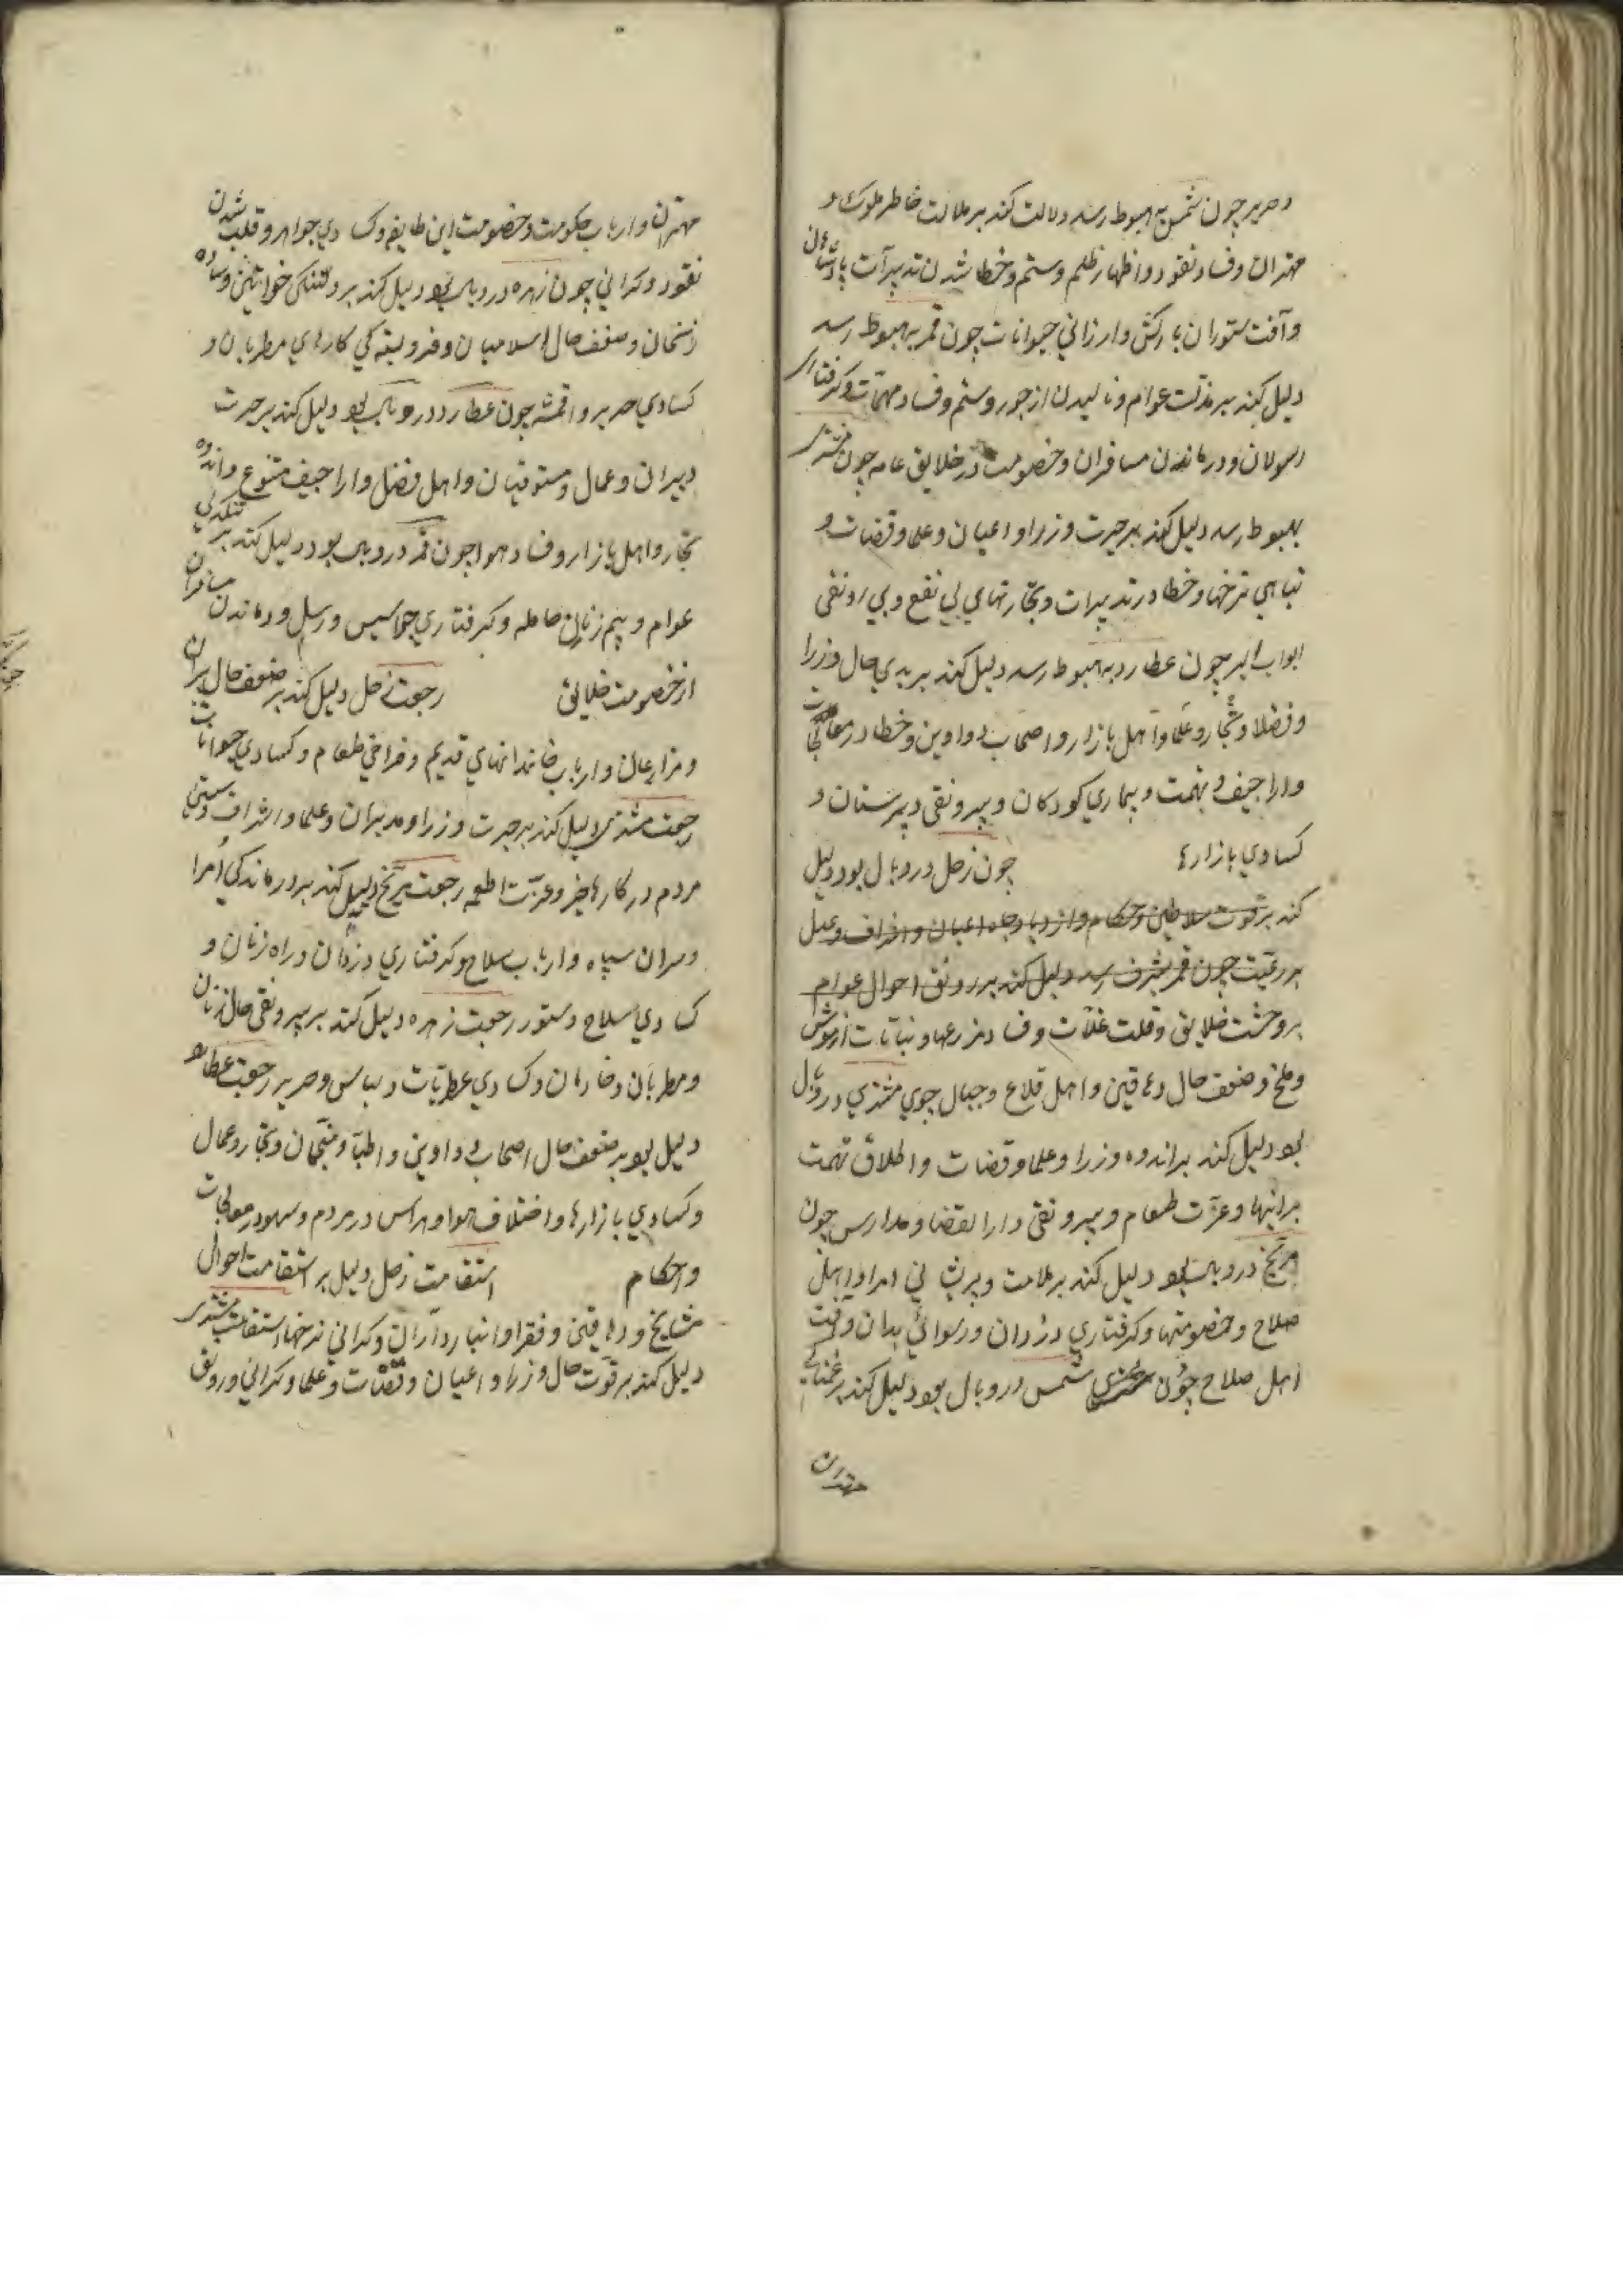 و حریر چون شمس بهبوط رسد دلالت کند بر ملالت خاطر ملوک و
مهتران و فساد نقود و اظهار ظلم و ستم و خطا شدن تدبیرات پادشاهان
و آفت ستوران بارکش و ارزانی حیوانات چون قمر بهبوط رسد
دلیل کند بر مذلت عوام و نالیدن از جور و ستم و فساد مهمات و گرفتاری
رسولان و درماندن مسافران و خصومت در خلایق عامه چون مشتری
بهبوط رسد دلیل کند بر حیرت وزرا و اعیان و علما و قضات و
تباهی نرخها و خطا در تدبیرات و تجارتهای بی نفع و بی رونقی
ابواب البر چون عطارد بهبوط رسد دلیل کند بر بدی حال وزرا
و فضلا و تجار و علما و اهل بازار و اصحاب دواوین و خطا در معالجات
و اراجیف و تهمت و بیماری کودکان و بیرونقی دبیرستان و
کسادی بازارها چون زحل در وبال بود دلیل
کند بر قوت سلاطین و حکام و ازدیاد جاه اعیان و اشراف و عدل
بر رعیت چون قمر بشرف رسد دلیل کند بر رونق احوال عوام
بر وحشت خلایق و قلت غلات و فساد مزرعها و نباتات از موش
و ملخ و ضعف حال دهاقین و اهل قلاع و جبال چوی مشتری در وبال
بود دلیل کند بر اندوه وزرا و علما و قضات و اطلاق تهمت
برانیها و عزت طعام و بیرونقی دار القضا و مدارس چون
مریخ در وبال بود دلیل کند بر ملامت و پریشانی امرا و اهل
صلاح و خصومتها و گرفتاری دزدان و رسوائی بدان و آفت
اهل صلاح چون شمس در وبال بود دلیل کند بر غمناکی
مهتران
مهتران و ارباب حکومت و خصومت این طایفه و کسادی جواهر و قلب شدن
نقود و گرانی چون زهره در وبال بود دلیل کند بر دلتنگی خواتین و ساده
زنخان و ضعف حال اسلامیان و فروبستگی کارهای مطربان و
کسادی حریر و اقمشه چون عطارد در وبال بود دلیل کند بر حیرت
دبیران و عمال و مستوفیان و اهل فضل و اراجیف متنوع و اندوه
تجار و اهل بازار و فساد هوا چون قمر در وبال بود دلیل کند بر تنگدلی
عوام و بیم زنان حامله و گرفتاری جواسیس و رسل و درماندن مسافران
از خصومت خلایق رجعت زحل دلیل کند بر ضعف حال پیران
و مزارعان و ارباب خاندانهای قدیم و فراخی طعام و کسادی حیوانات
رجعت مشتری دلیل کند بر حیرت وزرا و مدبران و علما و اشراف و سستی
مردم در کارها خیر و عزت اطعمه رجعت مریخ دلیل کند بر درماندگی امرا
و سران سپاه و ارباب سلاح و گرفتاری دزدان و راه زنان و
کسادی سلاح و ستور رجعت زهره دلیل کند بر بیرونقی حال زنان
و مطربان و خادمان و کسادی عطریات و لباس و حریر رجعت عطارد
دلیل بود بر ضعف حال اصحاب دواوین و اطبا و منجمان و تجار و عمال
و کسادی بازارها و اختلاف هوا و هراس در مردم و سهو در معالجات
و احکام استقامت زحل دلیل بر استقامت احوال
مشایخ و دهاقین و فقرا و انبارداران و گرانی نرخها استقامت مشتری
دلیل کند بر قوت حال وزرا و اعیان و قضات و علما و گرانی و رونق